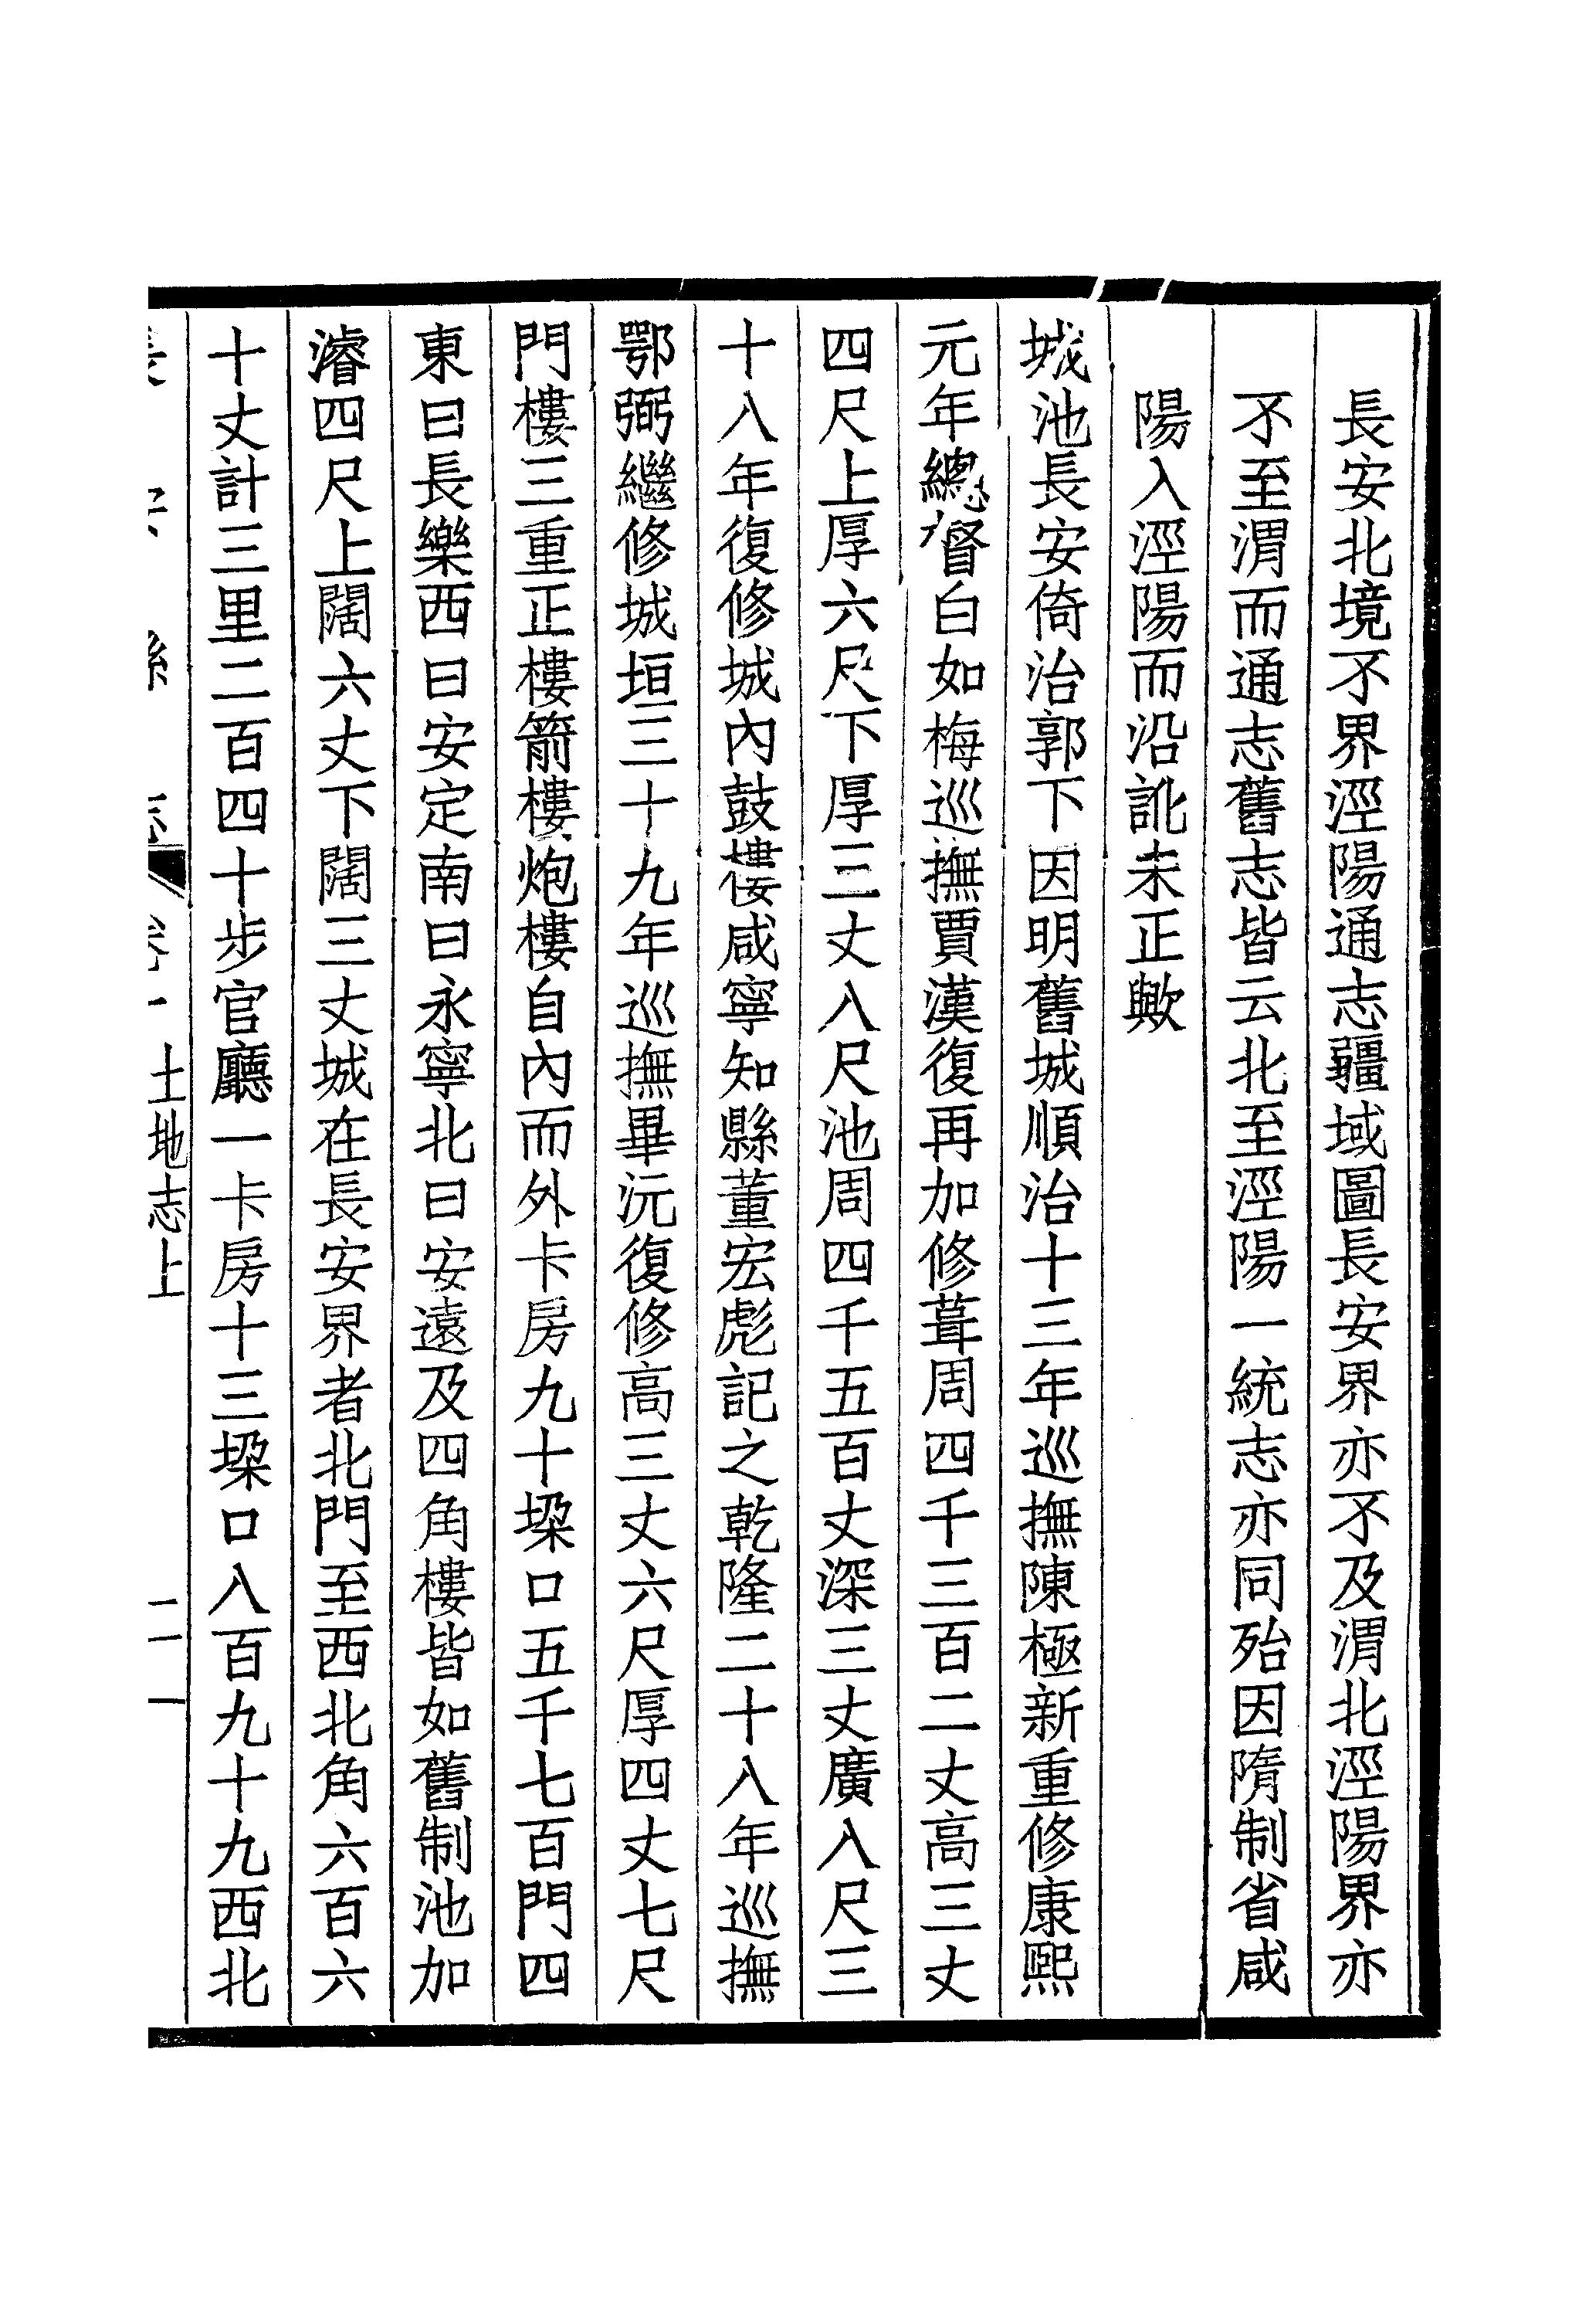 長安北境不界涇陽通志疆域圖長安界亦不及渭北涇陽界亦
不至渭而通志舊志皆云北至涇陽一統志亦同殆因隋制省咸
陽入涇陽而沿訛未正歟
城池長安倚治郭下因明舊城順治十三年巡撫陳極新重修康熙
元年總督白如梅巡撫賈漢復再加修葺周四千三百二丈高三丈
四尺上厚六尺下厚三丈八尺池周四千五百丈深三丈廣八尺三
十八年復修城內鼓樓咸寧知縣董宏彪記之乾隆二十八年巡撫
鄂弼繼修城垣三十九年巡撫畢沅復修高三丈六尺厚四丈七尺
門樓三重正樓箭樓炮樓自內而外卡房九十垜口五千七百門四
東曰長樂西曰安定南曰永寧北曰安遠及四角樓皆如舊制池加
濬四尺上闊六丈下闊三丈城在長安界者北門至西北角六百六
十丈計三里二百四十步官廳一卡房十三垜口八百九十九西北
長安縣志 卷十 土地志上 二一